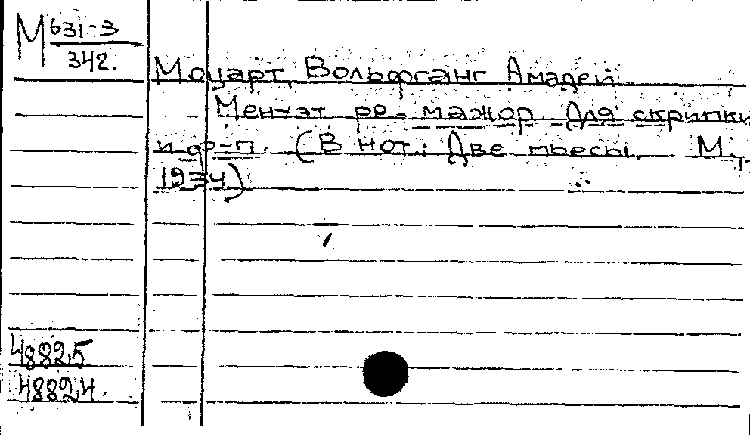 М 631-3
342.
Моцарт, Вольфганг Амадей
Менуэт ре-мажор для скрипки
и ф-п. (В нот.: Две пьесы. М.,
1934)
48825
48824.